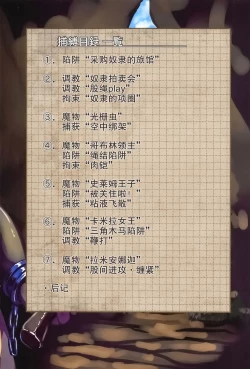 捕缚目录一览
1. 陷阱“采购奴隶的旅馆”
2. 调教“奴隶拍卖会”
调教“股绳play”
拘束“奴隶的项圈”
3. 魔物“光栅虫”
捕获“空中绑架”
4. 魔物“哥布林领主”
陷阱“绳结陷阱”
拘束“肉铠”
5. 魔物“史莱姆王子”
陷阱“被关住啦！”
捕获“粘液飞散”
6. 魔物“卡米拉女王”
陷阱“三角木马陷阱”
调教“鞭打”
7. 魔物“拉米安娜迦”
调教“股间进攻·缠紧”
·后记